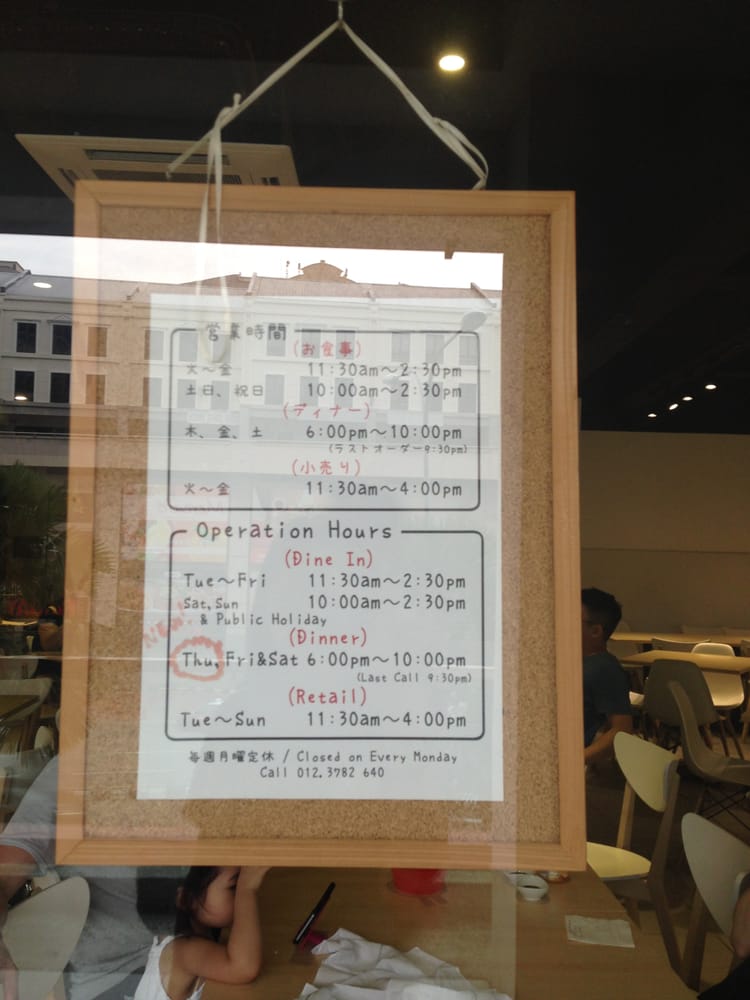 営業時間
(お食事)
火〜金 11:30am〜2:30pm
土日、祝日 10:00am〜2:30pm
(ディナー)
木、金、土 6:00pm〜10:00pm
(ラストオーダー9:30pm)
(小売り)
火〜金 11:30am〜4:00pm
Operation Hours
(Dine In)
Tue〜Fri 11:30am〜2:30pm
Sat,Sun 10:00am〜2:30pm
& Public Holiday
(Dinner)
NEW!
Thu, Fri&Sat 6:00pm〜10:00pm
(Last Call 9:30pm)
(Retail)
Tue〜Sun 11:30am〜4:00pm
毎週月曜定休 / Closed on Every Monday
Call 012.3782 640